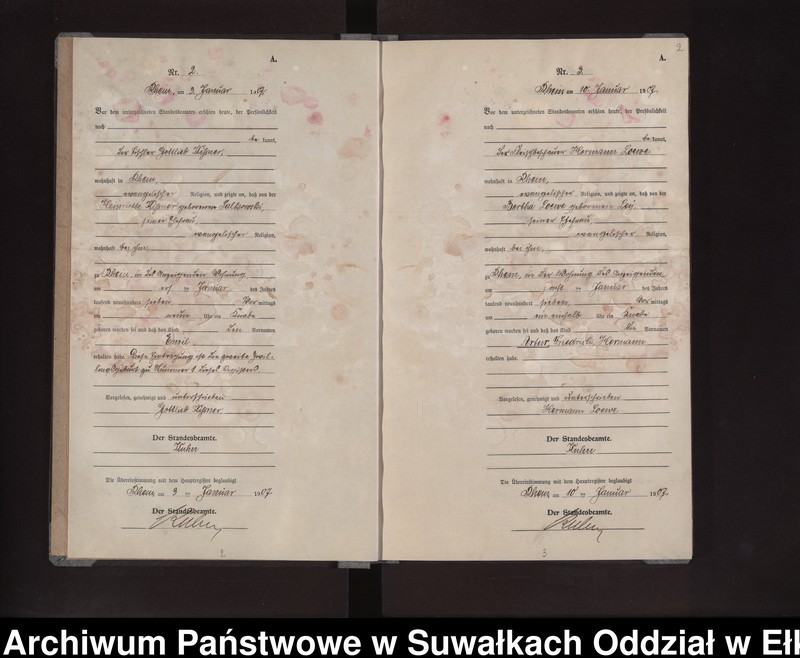 A.
Nr. 2.
am 3. Januar 1907.
Vor dem unterzeichneten Standesbeamten erschien heute, der Persönlichkeit
nach
be kannt,
der Gottlieb
wohnhaft in
evangelischer Religion, und zeigte an, daß von der
Henriette geborenen
seiner Ehefrau,
evangelischer Religion,
wohnhaft bei ihm,
zu in des Anzeigenden Wohnung
am ten Januar des Jahres
tausend neunhundert sieben Vor mittags
um neun Uhr ein Knabe
geboren worden sei und daß das Kind den Vornamen
Emil
erhalten habe. Diese Eintragung ist die zweite Zwil-
lingsgeburt zu Nummer 1 dieses Registers.
Vorgelesen, genehmigt und unterschrieben
Gottlieb
Der Standesbeamte.
Die Übereinstimmung mit dem Hauptregister beglaubigt
am 3 ten Januar 1907
Der Standesbeamte.
2
2
A.
Nr. 3.
am 10. Januar 1907.
Vor dem unterzeichneten Standesbeamten erschien heute, der Persönlichkeit
nach
be kannt,
der Hermann Loewe
wohnhaft in
evangelischer Religion, und zeigte an, daß von der
Bertha Loewe geborenen
seiner Ehefrau,
evangelischer Religion,
wohnhaft bei ihm,
zu in der Wohnung des Anzeigenden
am ten Januar des Jahres
tausend neunhundert sieben Vor mittags
um ein halb Uhr ein Knabe
geboren worden sei und daß das Kind die Vornamen
Artur Friedrich Hermann
erhalten habe.
Vorgelesen, genehmigt und unterschrieben
Hermann Loewe
Der Standesbeamte.
Die Übereinstimmung mit dem Hauptregister beglaubigt
am 10 ten Januar 1907.
Der Standesbeamte.
3
Archiwum Państwowe w Suwałkach Oddział w Ełk